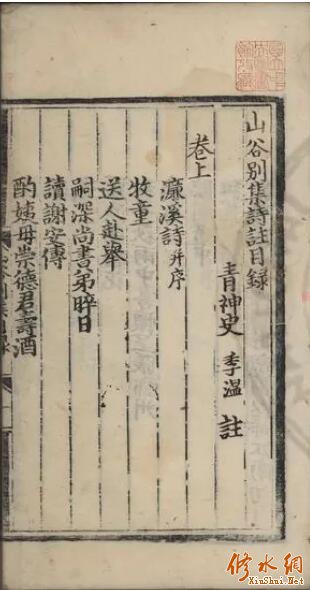 山谷別集詩註目録
青神史 季溫 註
卷上
濂溪詩并序
牧童
送人赴舉
嗣深尚書弟晬日
讀謝安傳
酌姨母崇德君壽酒
修水網
XiuShui.Net